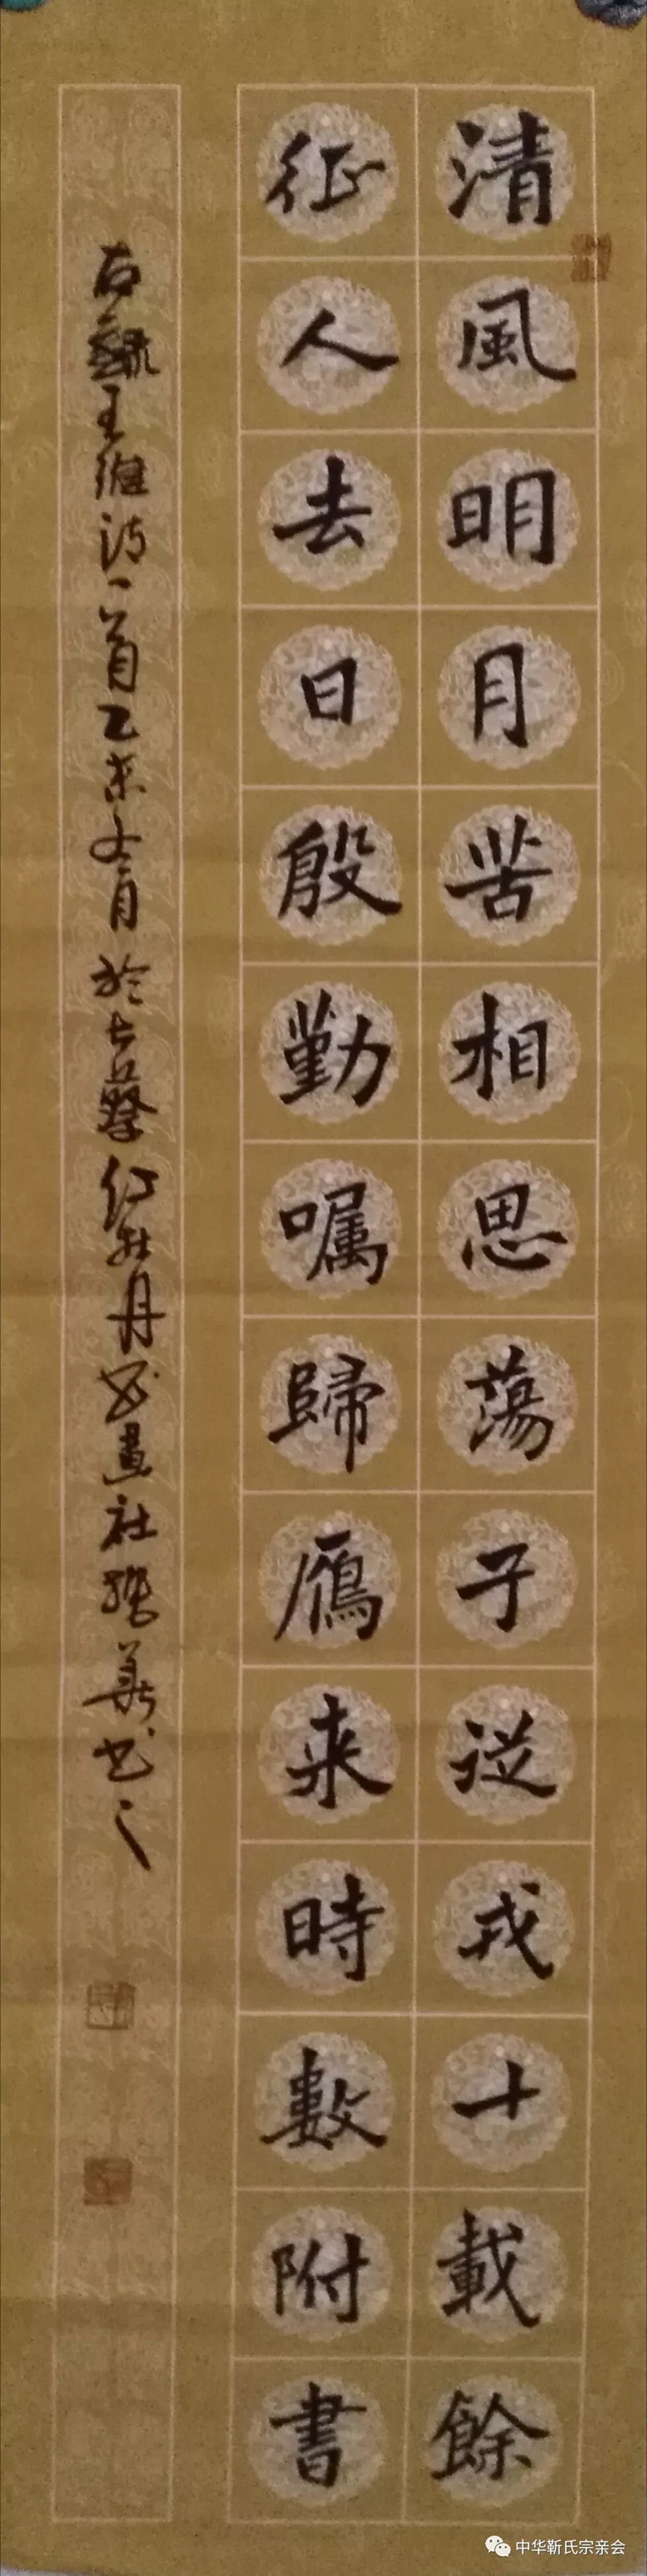 清風明月苦相思蕩子從戎十載餘
征人去日殷勤嘱歸雁来時數附書
右録王維詩一首乙未冬月於上蔡红牡丹书畫社书之
中华靳氏宗亲会